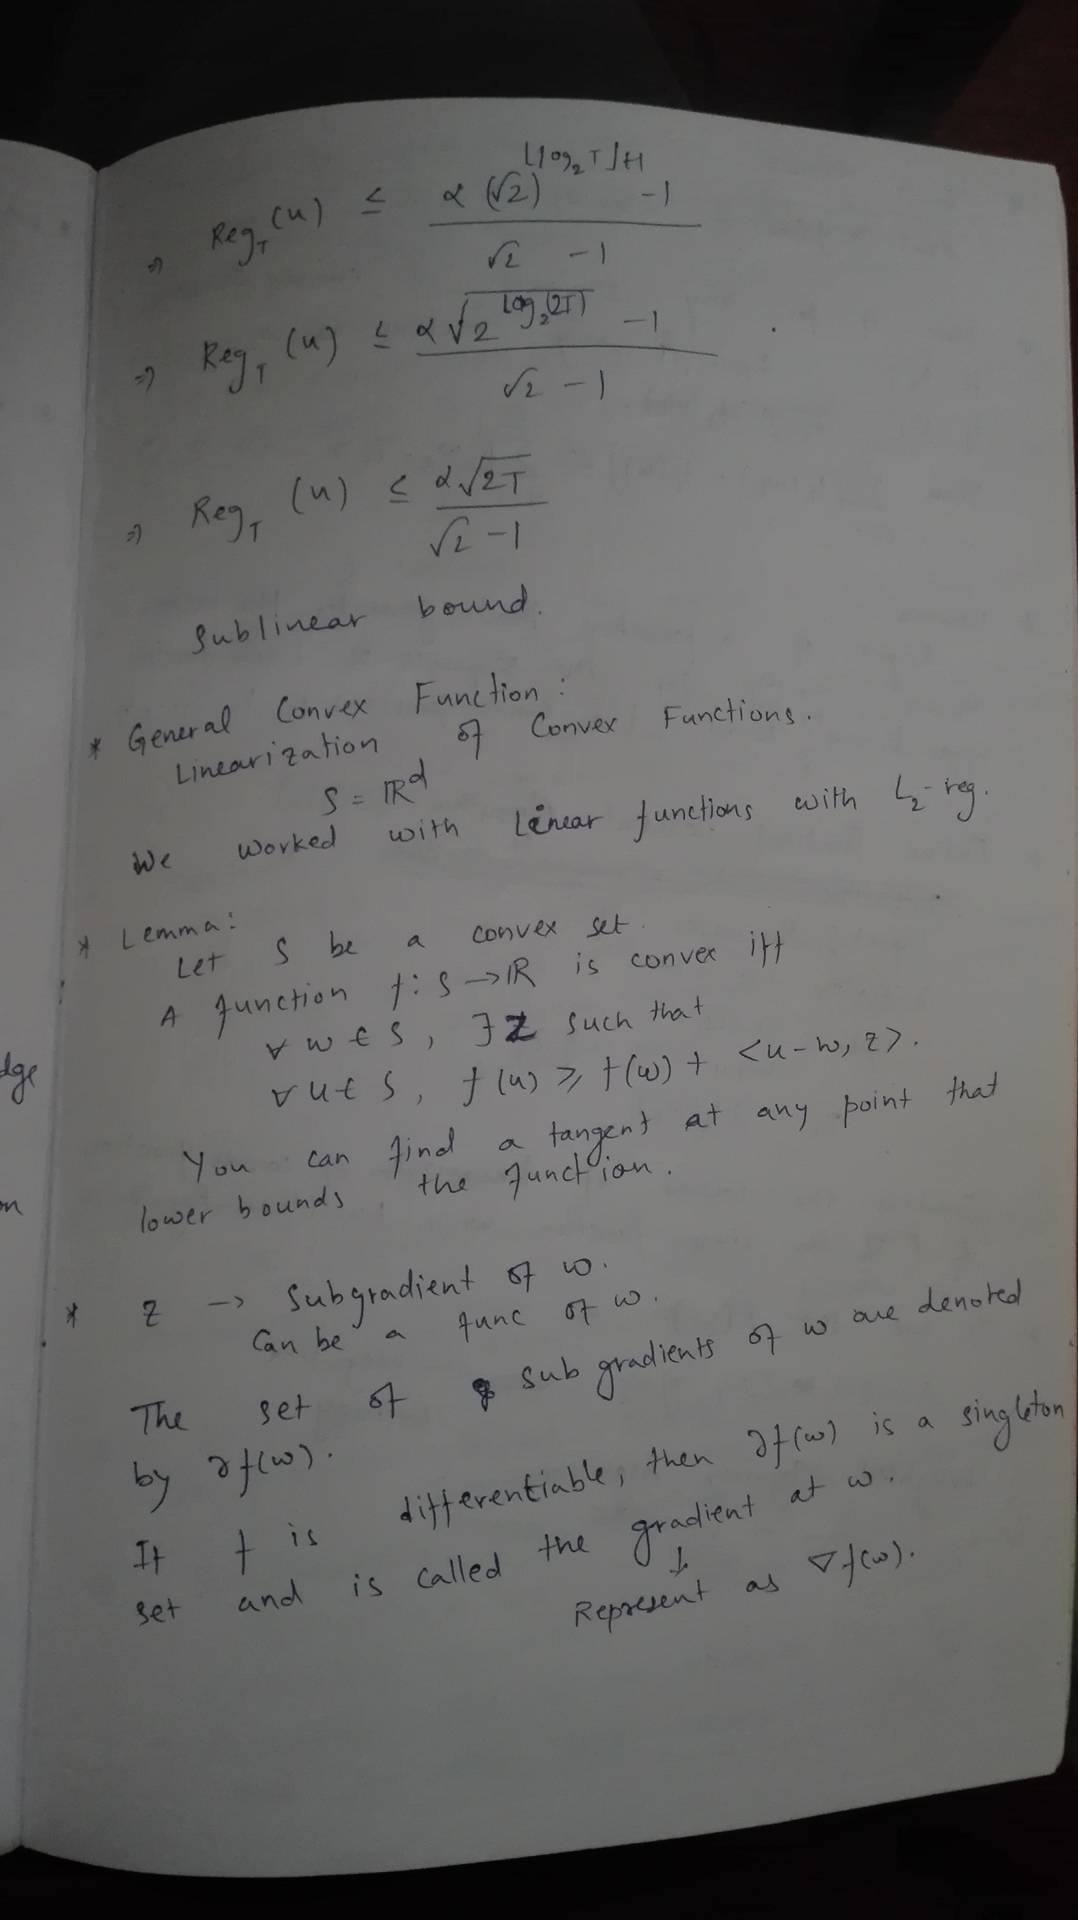 ⌊log₂T⌋+1
⇒ Reg_T(u) ≤ α(√2) -1
√2 - 1
⇒ Reg_T(u) ≤ α√2^log₂(2T) -1
√2 - 1
⇒ Reg_T(u) ≤ α√2T
√2 - 1
Sublinear bound.
* General Convex Function:
Linearization of Convex Functions.
S = ℝᵈ
We worked with Linear functions with L₂-reg.
* Lemma:
Let S be a convex set.
A function f: S → ℝ is convex iff
∀ w ∈ S, ∃ z such that
∀ u ∈ S, f(u) ≥ f(w) + <u-w, z>.
You can find a tangent at any point that
lower bounds the function.
* z → Subgradient of w.
Can be a func of w.
The set of sub gradients of w are denoted
by ∂f(w).
If f is differentiable, then ∂f(w) is a singleton
set and is called the gradient at w.
↓
Represent as ∇f(w).
dge
on